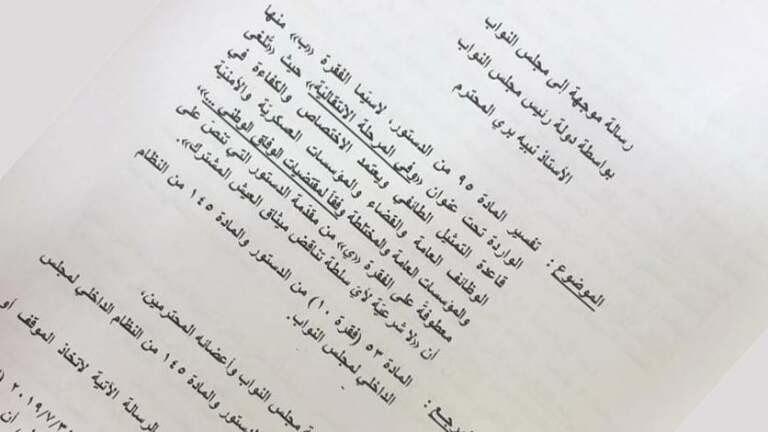 رسالة موجهة الى مجلس النواب
بواسطة دولة رئيس مجلس النواب
الأستاذ نبيه بري المحترم
الموضوع : تفسير المادة ٩٥ من الدستور، لاسيّما الفقرة «ب» منها
الواردة تحت عنوان «وفي المرحلة الانتقالية» حيث «تُلغى
قاعدة التمثيل الطائفي ويعتمد الاختصاص والكفاءة في
الوظائف العامة والقضاء والمؤسسات العسكرية والأمنيّة
والمؤسسات العامة والمختلطة وفقاً لمقتضيات الوفاق الوطني ...»،
معطوفةً على الفقرة «ي» من مقدّمة الدستور التي تنص على
أن «لا شرعيّة لأي سلطة تناقض ميثاق العيش المشترك».
المرجع : المادة ٥٣ (فقرة ١٠) من الدستور والمادة ١٤٥ من النظام
الداخلي لمجلس النواب.
مجلس النواب وأعضائه المحترمين،
والمادة ١٤٥ من النظام الداخلي لمجلس
الرسالة الآتية لاتخاذ الموقف أو